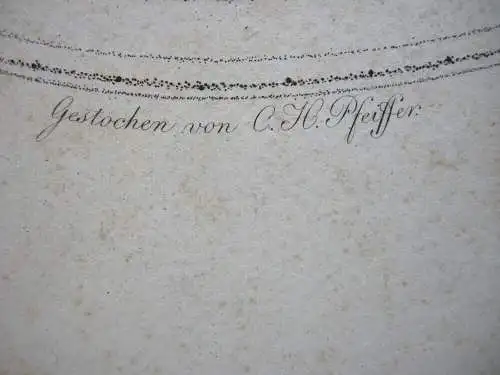 Gestochen von C. H. Pfeiffer.